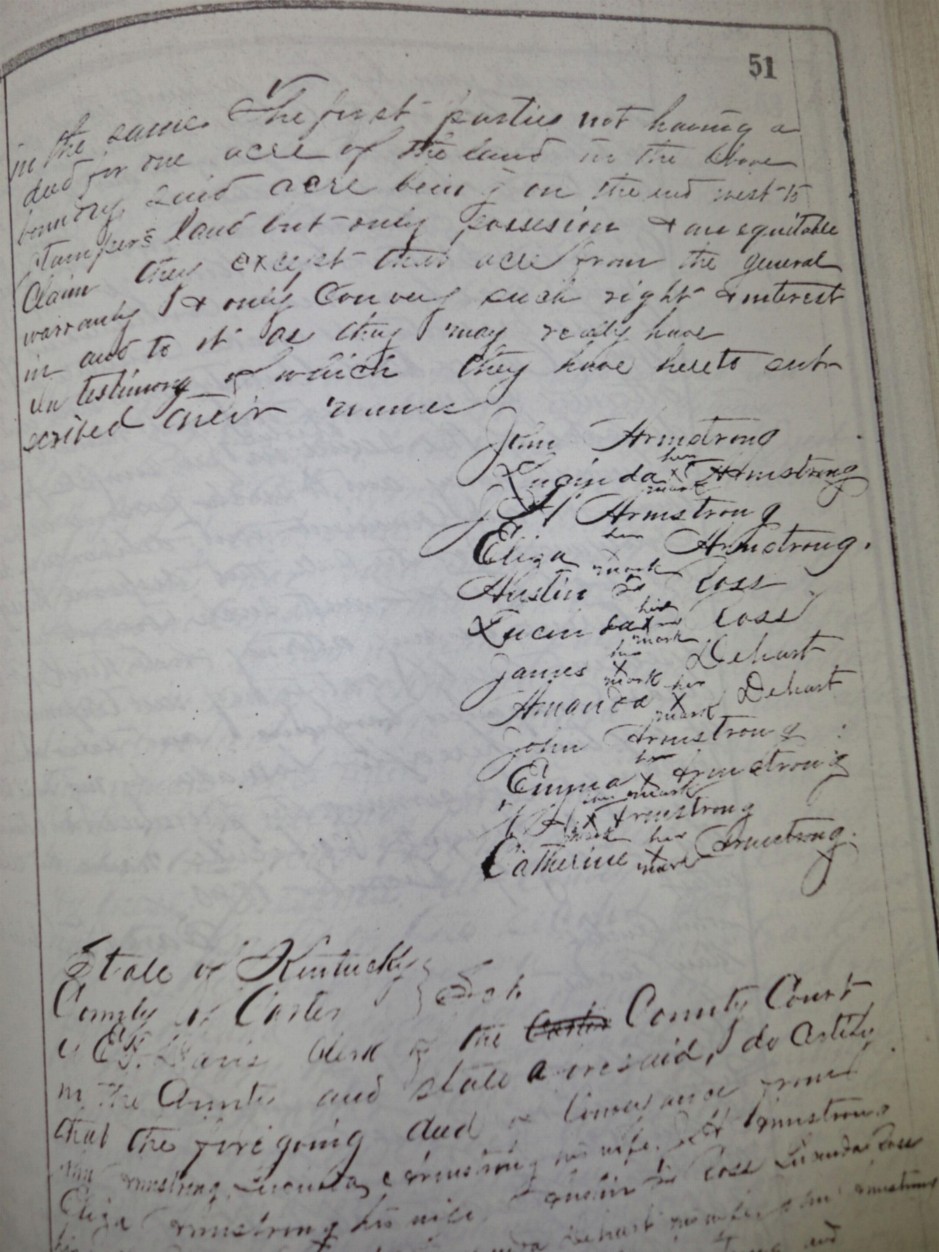 51
in the same. The first parties not having a
deed for one acre of the land in the above
boundry said acre being on the end next to
Stampers land but only possesion & an equitable
Claim they except that acre from the general
warranty & only Convey such right & interest
in and to it as they may really have
In testimony of which they have hereto sub-
scribed their names
John Armstrong
her
Lucinda x Armstrong
mark
Armstrong
her
Eliza Armstrong.
mark
Austin Coss
her
Lucinda x Coss
mark
his
James x Dehart
mark her
Amanda x Dehart
mark
John Armstrong
her
Emma x Armstrong
mark
x Armstrong
mark her
Catherine Armstrong.
mark
State of Kentucky
County of Carter } Sct.
Davis Clerk of the County Court
in the County and state aforesaid, do certify
that the foregoing deed from
Armstrong, Armstrong his wife, Armstrong
Eliza Armstrong his wife, Coss Coss
Dehart Armstrong
and